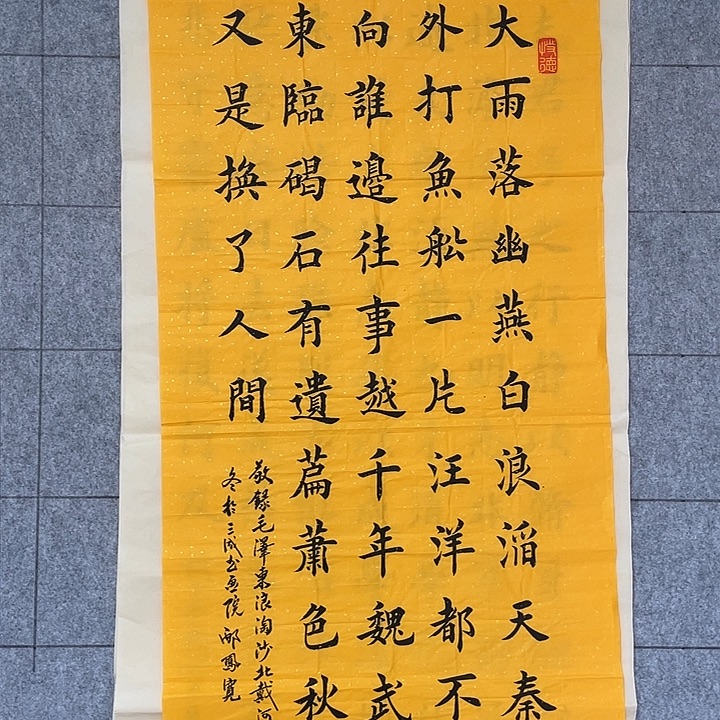 大雨落幽燕白浪滔天秦
外打魚舩一片汪洋都不
向誰邊往事越千年魏武
東臨碣石有遺篇蕭色秋
又是換了人間
敬錄毛澤東浪淘沙北戴河
冬於三成書畫院 鳳寬